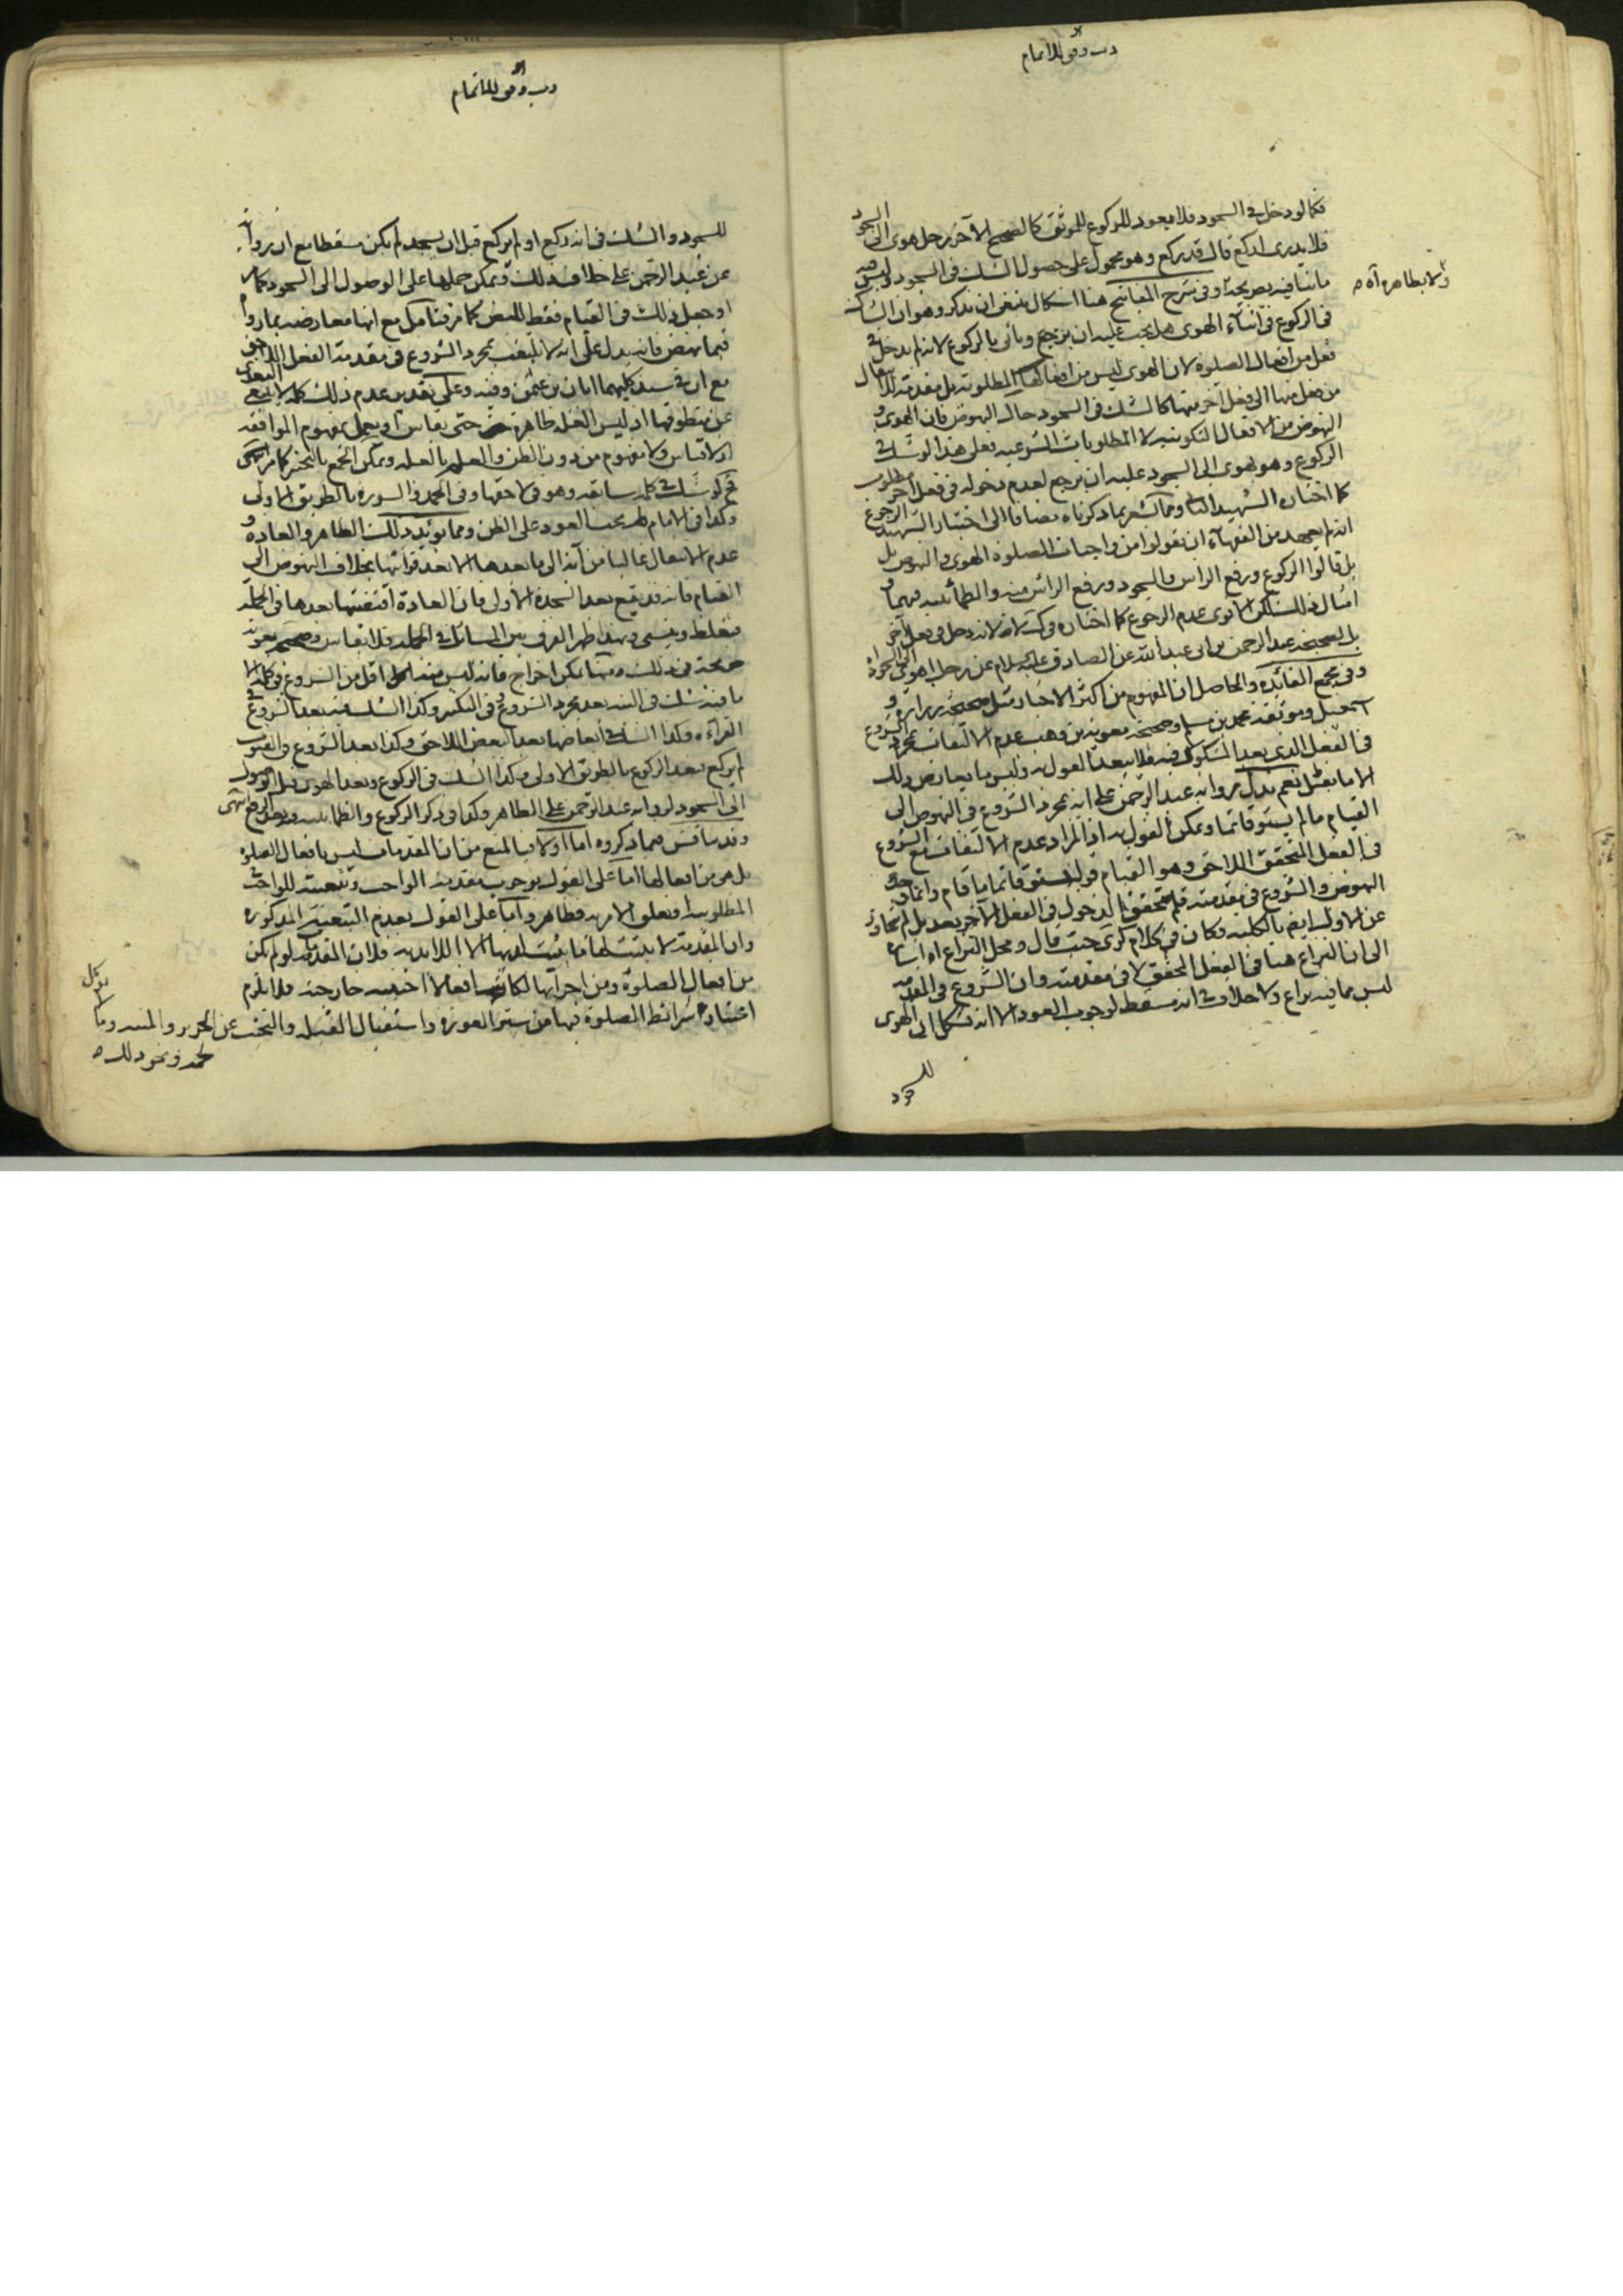 رب وفق للاتمام
فكما لو دخل في السجود فلا يعود للركوع للموثق كالصحيح الآخر رجل هوى الى السجود
فلا يدرى اركع قال قد ركع وهو محمول على حصول الشك في السجود وليس
ما ينافيه بصريحه وفي شرح المفاتيح هنا اشكال ينبغي ان نذكره وهو ان الشاك
في الركوع في اثناء الهوى هل يجب عليه ان يرجع وياتى بالركوع لانه لم يدخل في
فعل من افعال الصلوة لان الهوى ليس من افعالها المطلوبة بل مقدمة للانتقال
من فعل منها الى فعل آخر منها كالشك في السجود حال النهوض فان الهوى و
النهوض من الافعال التكوينيه لا المطلوبات الشرعيه فعلى هذا لو شك في
الركوع وهو يهوى الى السجود عليه ان يرجع لعدم دخوله في فعل آخر مطلوب
كما اختاره الشهيد الثاني ومما يشعر بما ذكرناه مضافا الى اختيار الشهيد الرجوع
انه لم يعهد من الفقهاء ان يقولوا من واجبات الصلوة الهوى والنهوض بل
بل قالوا الركوع ورفع الراس والسجود ورفع الراس منه والطمانينه فيهما و
امثال ذلك لكن الاقوى عدم الرجوع كما اختاره في ك لانه دخل في فعل آخر
بل لصحيحة عبد الرحمن بن ابى عبد الله عن الصادق عليه السلام عن رجل اهوى الى السجود اه
وفي مجمع الفائده والحاصل ان المفهوم من اكثر الاخبار مثل صحيحة زراره و
اسمعيل وموثقة محمد بن مسلم وصحيحة معوية بن وهب عدم الالتفات بمجرد الشروع
في الفعل الذي بعد المشكوك فيه فلا يبعد القول به وليس ما يعارض ذلك
الا ما نقل نعم يدل رواية عبد الرحمن على انه بمجرد الشروع في النهوض الى
القيام ما لم يستو قائما ويمكن القول به اذ المراد عدم الالتفات مع الشروع
في الفعل المتحقق اللاحق وهو القيام قوله يستوى قائما ما قام وانما وجد
النهوض والشروع في مقدمته فلم يتحقق الدخول في الفعل الآخر بعد بل لم يتجاوز
عن الاول ايضا بالكلية فكان في كلام كرى حيث قال ومحل النزاع اه اشاره
الى ان النزاع هنا في الفعل المحقق لا في مقدمته وان الشروع في المقدمه
ليس مما فيه نزاع ولا خلاف في انه مسقط لوجوب العود الا انه تشكل الى الهوى
للسجود
والا بظاهره آه م
رب وفق للاتمام
للسجود والشك في انه ركع او لم يركع قبل ان يسجد لم يكن مسقطا مع ان رواية
عن عبد الرحمن على خلاف ذلك ويمكن حملها على الوصول الى السجود كما مر
او جعل ذلك في القيام فقط للنص كما مر فتامل مع انها معارضة بما رواه
فيما نهض فانه يدل على انه لا يلتفت بمجرد الشروع في مقدمة الفعل اللاحق
مع ان في سند كليهما ابان بن عثمن وفيه وعلى تقدير عدم ذلك كله لا ينبغي التعدى
عن منطوقها اذ ليس العله ظاهرة حتى يقاس او يعمل بمفهوم الموافقه
اذ لا قياس ولا مفهوم من دون الظن والعلم بالعله ويمكن الجمع بالتخيير كما مر انتهى
ثم لو شك في كلمه سابقه وهو في لاحقها وفي الحمد والسوره بالطريق الاولى
وكذا في الامام لم يجب العود على الظن ومما يؤيد ذلك الظاهر والعادة و
عدم الانتقال غالبا من آية الى ما بعدها الا بعد قرائتها بخلاف النهوض الى
القيام فانه قد يقع بعد السجدة الاولى فان العادة اقتضتها بعدها في الجمله
فيغلط وينسى وبهذا ظهر الفرق بين المسائل في الجمله فلا يقاس وصحيحه معوية
صريحة في ذلك ومنها يمكن اخراج فانه ليس منه اقل من الشروع في كله الا
ما فيه شك في النيه بعد مجرد الشروع في التكبير وكذا الشك فيه بعد الشروع في
القراءه وكذا الشك في ابعاضها بعد البعض اللاحق وكذا بعد الشروع في القنوت
لم يركع بعد الركوع بالطريق الاولى وكذا الشك في الركوع وبعد الهوى قبل الوصول
الى السجود لرواية عبد الرحمن على الظاهر وكذا في ذكر الركوع والطمانينه وبعد الرفع انتهى
وقد يناقش فيما ذكروه اما اولا فبالمنع من ان المقدمات ليس بافعال الصلوه
بل هي من افعالها اما على القول بوجوب مقدمة الواجب وتبعيته للواجب
المطلوبيه وتعلق الامر به فظاهر واما على القول بعدم التبعية المذكوره
وان المقدمة لا يثبت لها مما يثبت لذيها الا اللابديه فلان المقدمه لو لم تكن
من افعال الصلوة ومن اجزائها لكانت افعالا اجنبيه خارجة فلا يلزم
اعتبار شرائط الصلوة فيها من ستر العورة واستقبال القبله والتجنب عن الحرير والميته وما لا يوكل
لحمه ونحو ذلك